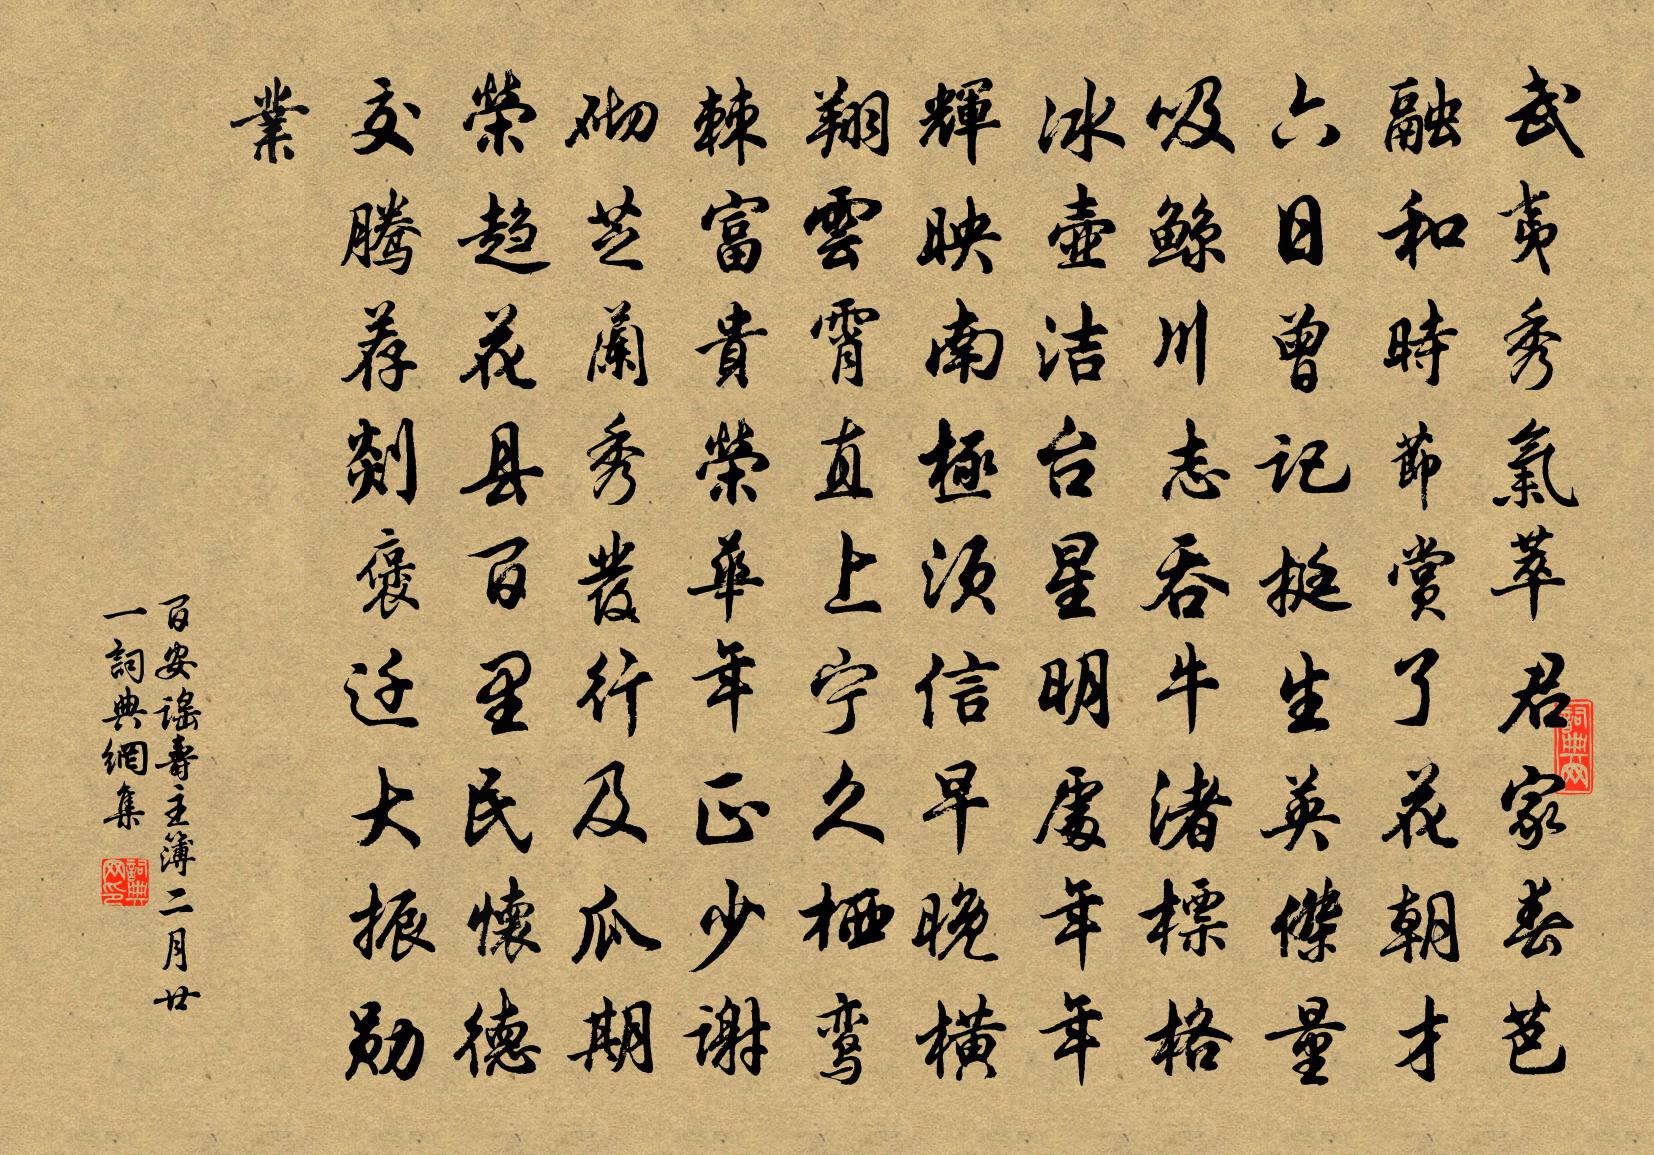 武夷秀氣萃君家春芭
融和時節賞了花朝才
六日曾記挺生英傑量
吸鯨川志吞牛渚標格
冰壺洁台星明處年年
輝映南極須信早晚橫
翔雲霄直上宁久栖鸾
棘富貴榮華年正少谢
砌芝蘭秀發行及瓜期
榮趋花县百里民懷德
交腾荐剡褒迁大振勋
業
百安謠壽主簿二月廿
一詞典網集
詞典网
詞典网印